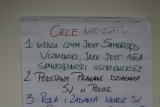 CELE WARSZTATU
1 WIEDZA CZYM JEST SAMORZĄD
UCZNIOWSKI, JAKA JEST IDEA
SAMORZĄDNOŚCI UCZNIOWSKIEJ
2 PODSTAWY PRAWNE DZIAŁANIA
SU W POLSCE
3 ROLA I ZADANIA